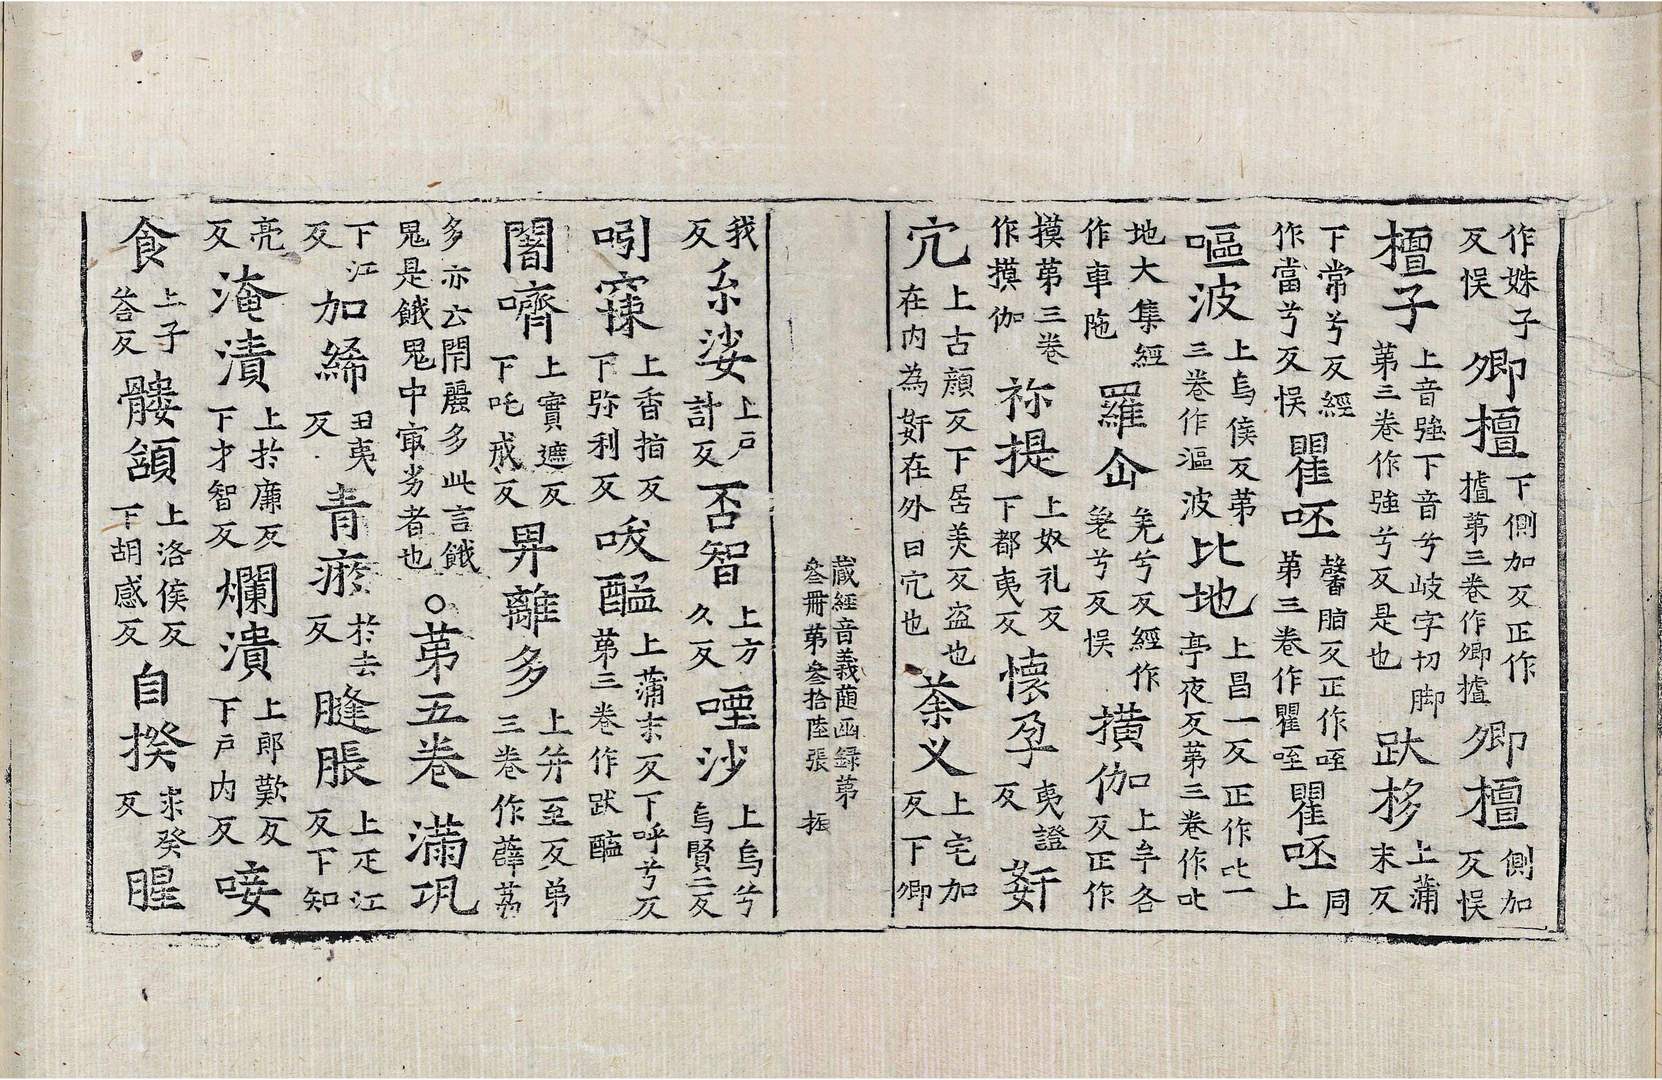 作姝子反悮卿檀下側加反正作摣第三卷作卿摣卿檀側加反悮
檀子上音強下音兮岐字切脚第三卷作強兮反是也趺栘上蒲末反
下常兮反經作當兮反悮瞿呸馨脂反正作咥第三卷作瞿咥瞿呸同上
嘔波上烏侯反第三卷作漚波比地上昌一反正作叱一亭夜反第三卷作叱
地大集經作車陁羅㐰羌兮反經作㲋兮反悮撗伽上牟各反正作
摸第三卷作摸伽祢提上奴礼反下都夷反懷孕夷證反姧
宄上古顔反下居美反盗也在内為姧在外曰宄也荼义上宅加反下卿
蔵經音義随函録第叁冊第叁拾陸張
我反糸娑上戸計反否智上方久反堙沙上烏兮烏賢二反
㖇㝥上香指反下弥利反㕙醯上蒲末反下呼兮反第三卷作跋醯
闍嚌上實遮反下吒戒反畀離多上并至反弟三卷作薜荔
多亦云閇麗多此言餓鬼是餓鬼中㝡劣者也○第五卷滿瓨
下江反加絺丑夷反青瘀於去反䐔脹上疋江反下知
亮反淹漬上於廉反下才智反爛潰上郎歎反下戸内反唼
食上子荅反髏頷上洛侯反下胡感反自揆求癸反腥